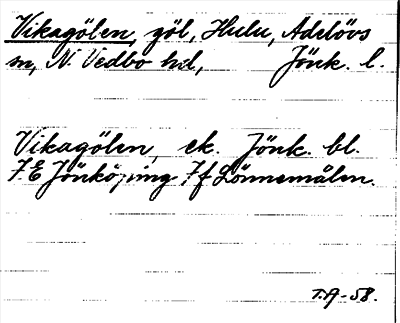 Vikagölen, göl, Hulu, Adelövs
sn, N. Vedbo hd, Jönk. l.
Vikagölen, ek. Jönk. bl.
7E Jönköping 7f Lönnemålen.
T.A-58.